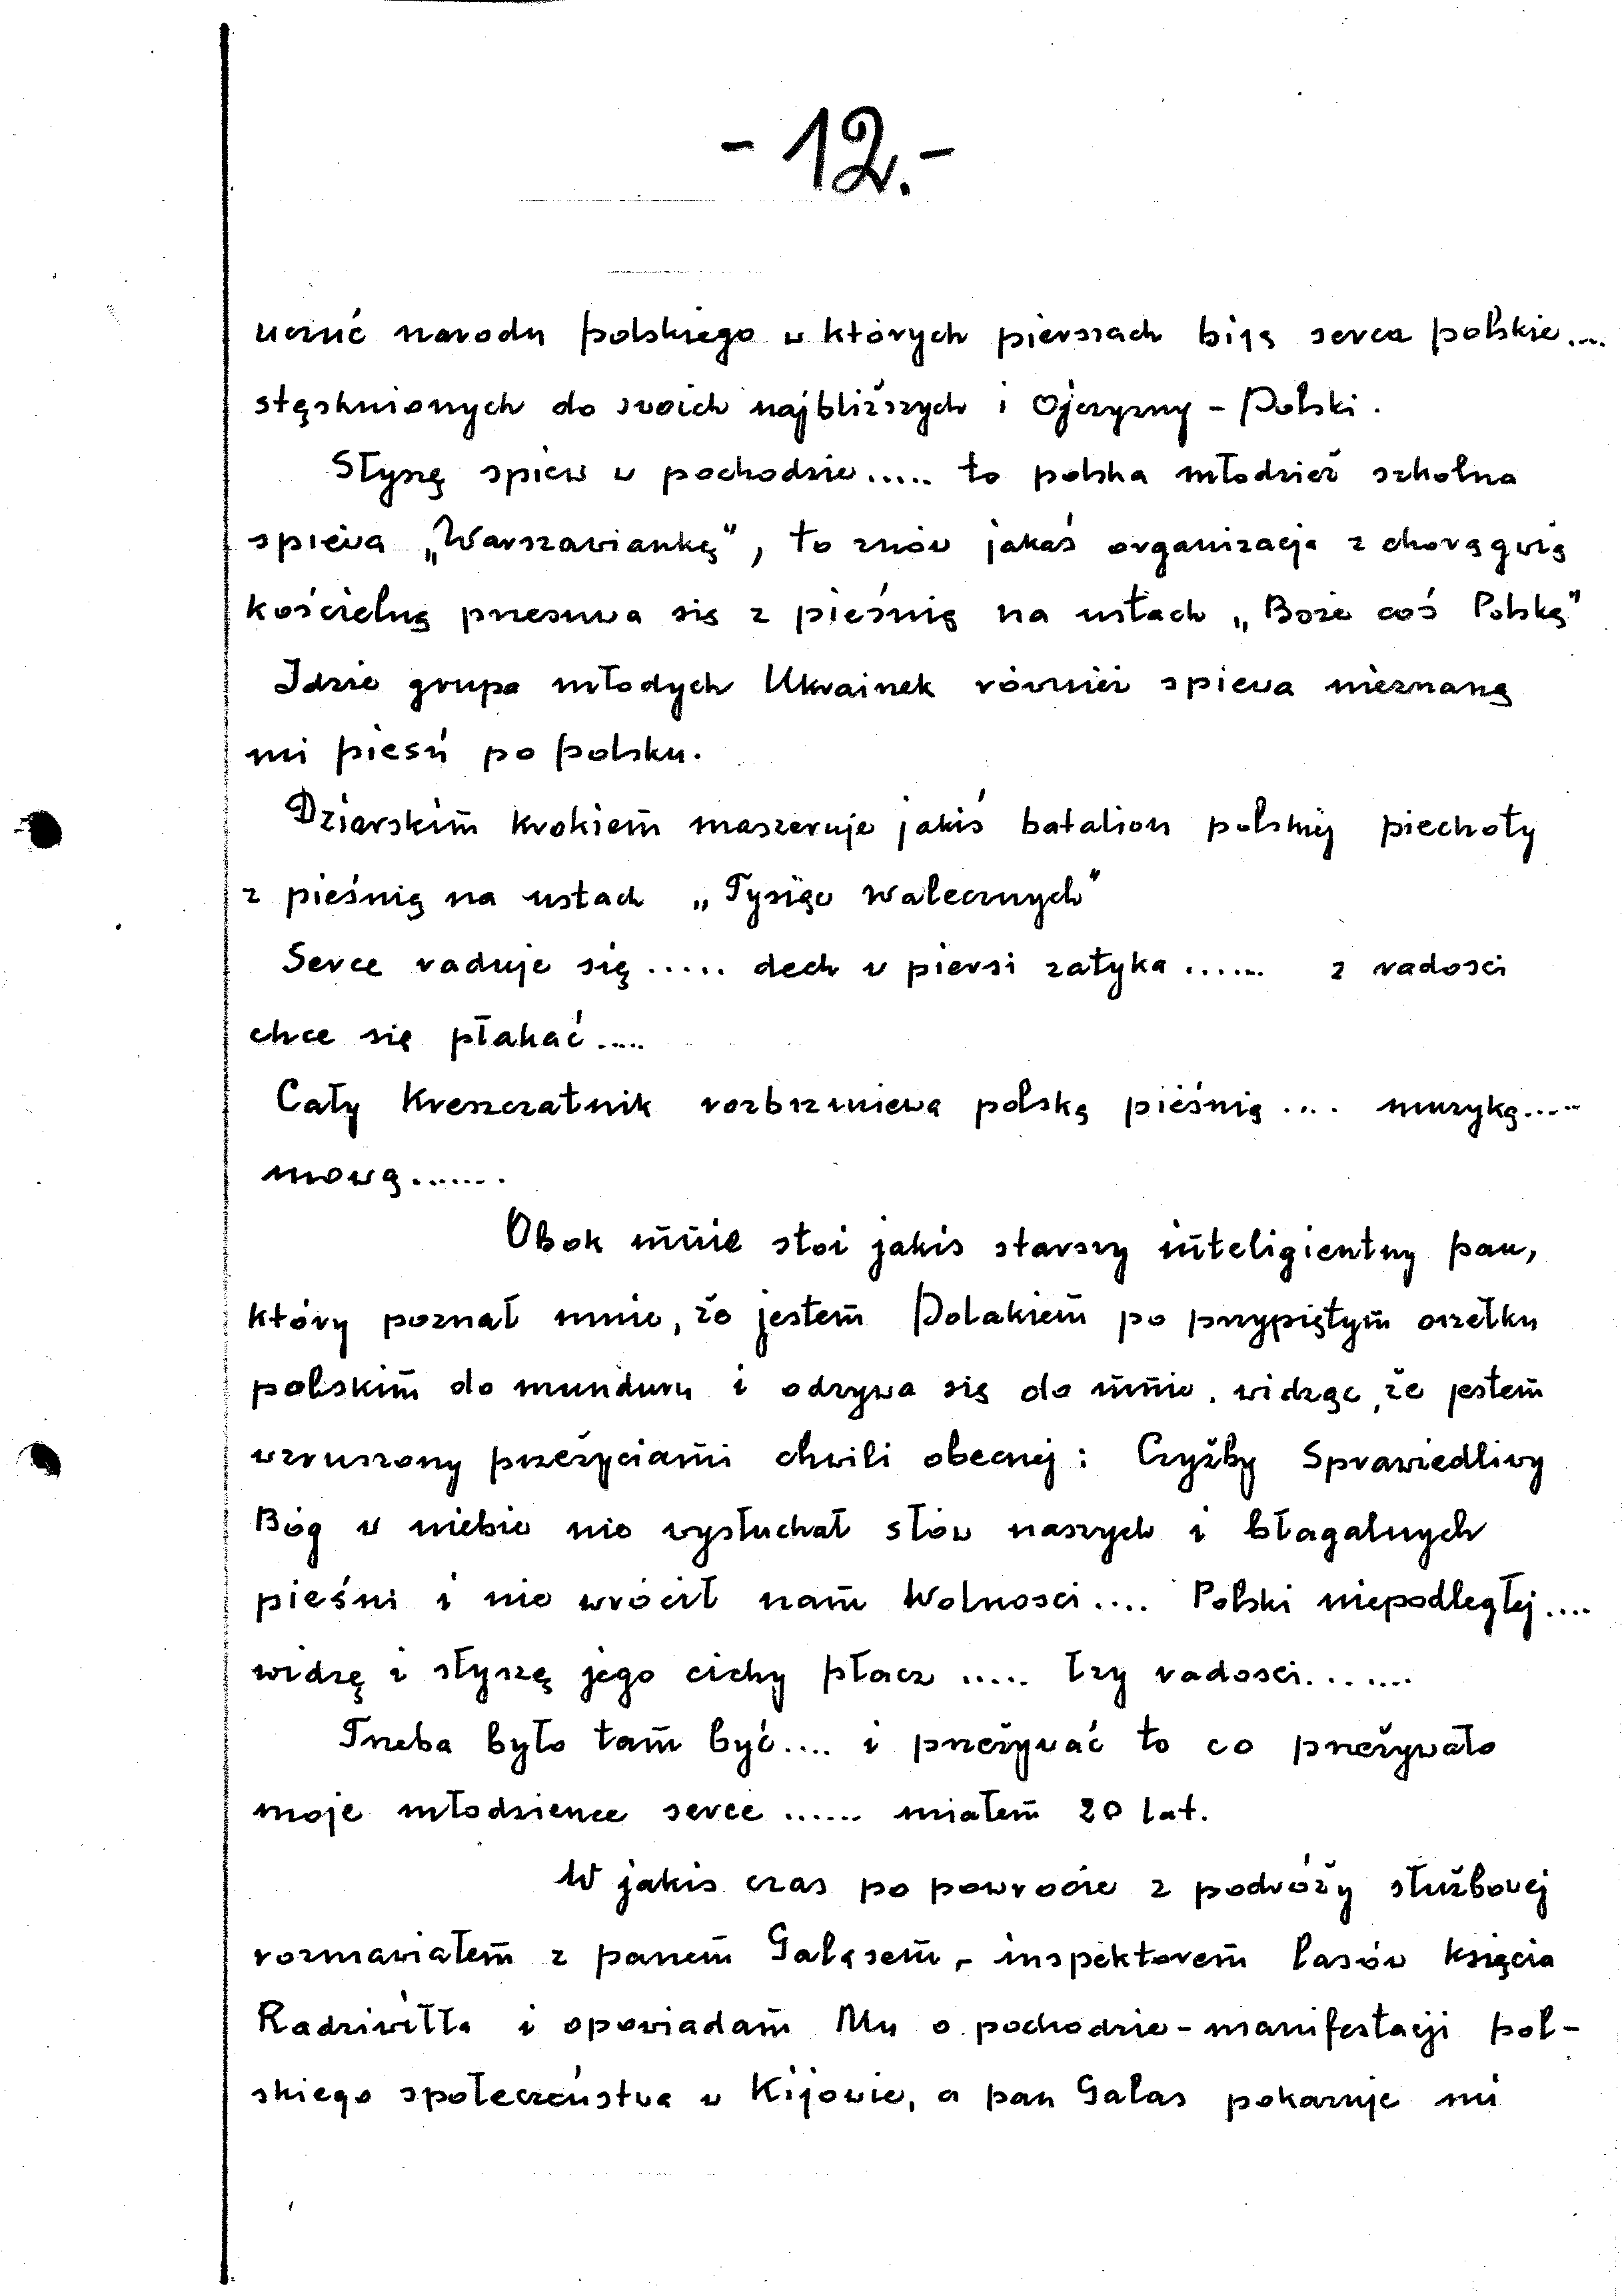 - 12.-
uczuć narodu polskiego w których piersiach biją serca polskie....
stęsknionych do swoich najbliższych i Ojczyzny - Polski.
Słyszę spiew w pochodzie..... to polska młodzież szkolna
spiewa „Warszawiankę", to znów jakaś organizacja z chorągwią
kościelną przesuwa się z pieśnią na ustach „Boże coś Polskę"
Idzie grupa młodych Ukrainek również spiewa nieznaną
mi pieśń po polsku.
Dziarskim krokiem maszeruje jakiś batalion polskiej piechoty
z pieśnią na ustach „Tysiąc walecznych"
Serce raduje się..... dech w piersi zatyka...... z radosci
chce się płakać.....
Cały Kreszczatnik rozbrzmiewa polską pieśnią.... muzyką.....
mową.......
Obok mnie stoi jakis starszy inteligientny pan,
który poznał mnie, że jestem Polakiem po przypiętym orzełku
polskim do munduru i odzywa się do mnie, widząc, że jestem
wzruszony przeżyciami chwili obecnej: Czyżby Sprawiedliwy
Bóg w niebie nie wysłuchał słów naszych i błagalnych
pieśni i nie wrócił nam Wolnosci.... Polski niepodległej....
widzę i słyszę jego cichy płacz ..... łzy radosci.......
Trzeba było tam być.... i przeżywać to co przeżywało
moje młodziencze serce ...... miałem 20 lat.
W jakis czas po powrocie z podróży służbowej
rozmawiałem z panem Galąsem, - inspektorem lasów księcia
Radziwiłła i opowiadam Mu o pochodzie - manifestacji pol-
skiego społeczeństwa w Kijowie, a pan Galas pokazuje mi